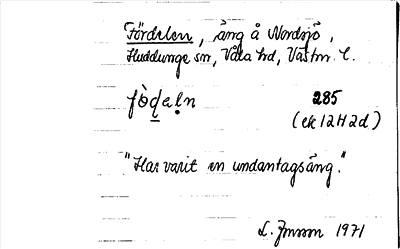 Fördelen, äng å Nordsjö,
Huddunge sn, Våla hd, Västm. l.
fò̱ḍeḷn 285
(ek 12H2d)
"Har varit en undantagsäng."
L. Jonsson 1971